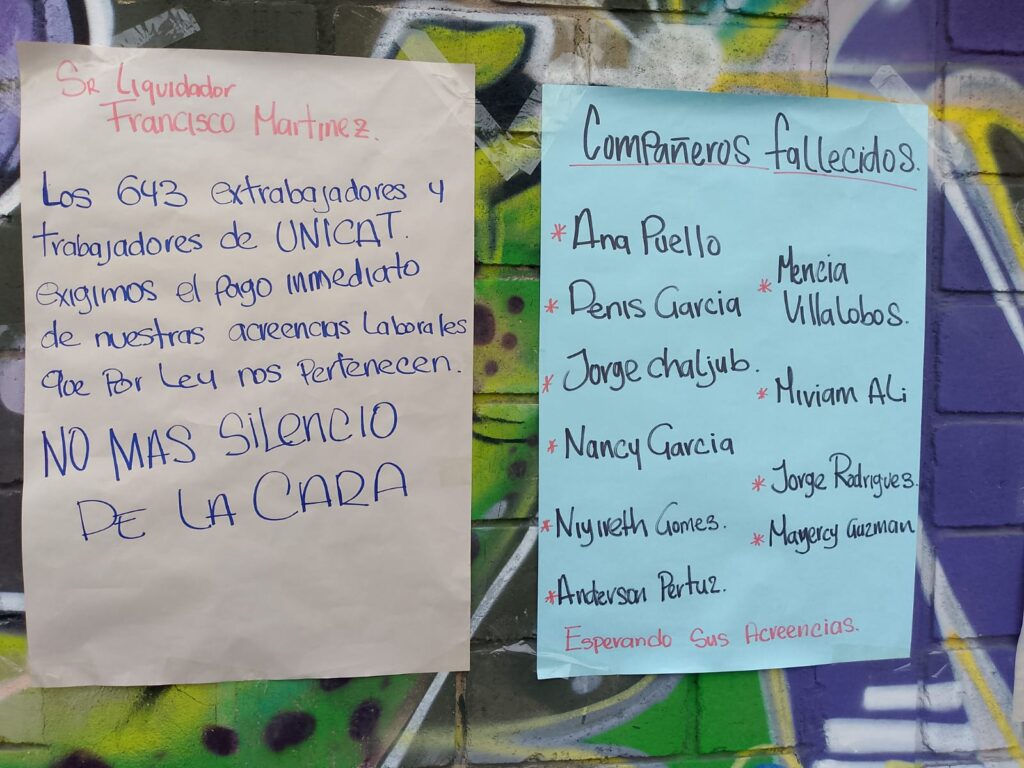 Sr Liquidador
Francisco Martinez.
Los 643 extrabajadores y
trabajadores de UNICAT.
exigimos el pago inmediato
de nuestras acreencias laborales
que por Ley nos pertenecen.
NO MAS SILENCIO
DE LA CARA
Compañeros fallecidos.
* Ana Puello
* Denis Garcia
* Jorge chaljub.
* Nancy Garcia
* Niyireth Gomes.
* Anderson Pertuz.
* Mencia
Villalobos.
* Miviam Ali
* Jorge Rodrigues.
* Mayercy Guzman
Esperando Sus Acreencias.